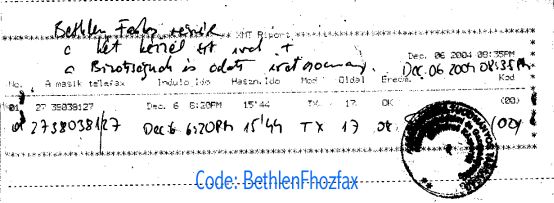 Bethlen Farkas részére
a két kézzel írt irat +
a Bizottságnak is adott iratanyag.
XMT Report
Dec. 06 2004 08:35PM
Dec. 06 2004 08:35PM
No. A masik telefax Indulo.ido Haszn.ido Mod Oldal Eredm. Kod
01 27 38038127 Dec. 6 6:20PM 15'44 TX 17 OK (00)
01 2738038127 Dec 6 6:20PM 15'44 TX 17 OK (00)
Code: BethlenFhozfax